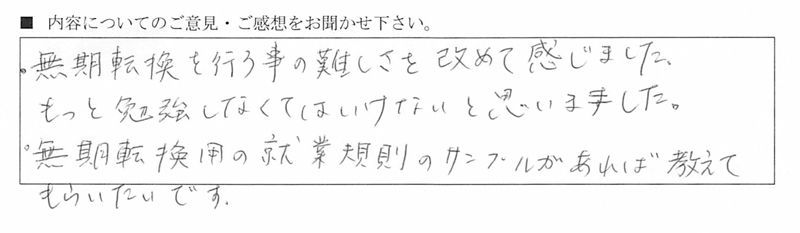 ■ 内容についてのご意見・ご感想をお聞かせ下さい。
・無期転換を行う事の難しさを改めて感じました、
もっと勉強しなくてはいけないと思いました。
・無期転換用の就業規則のサンプルがあれば教えて
もらいたいです.